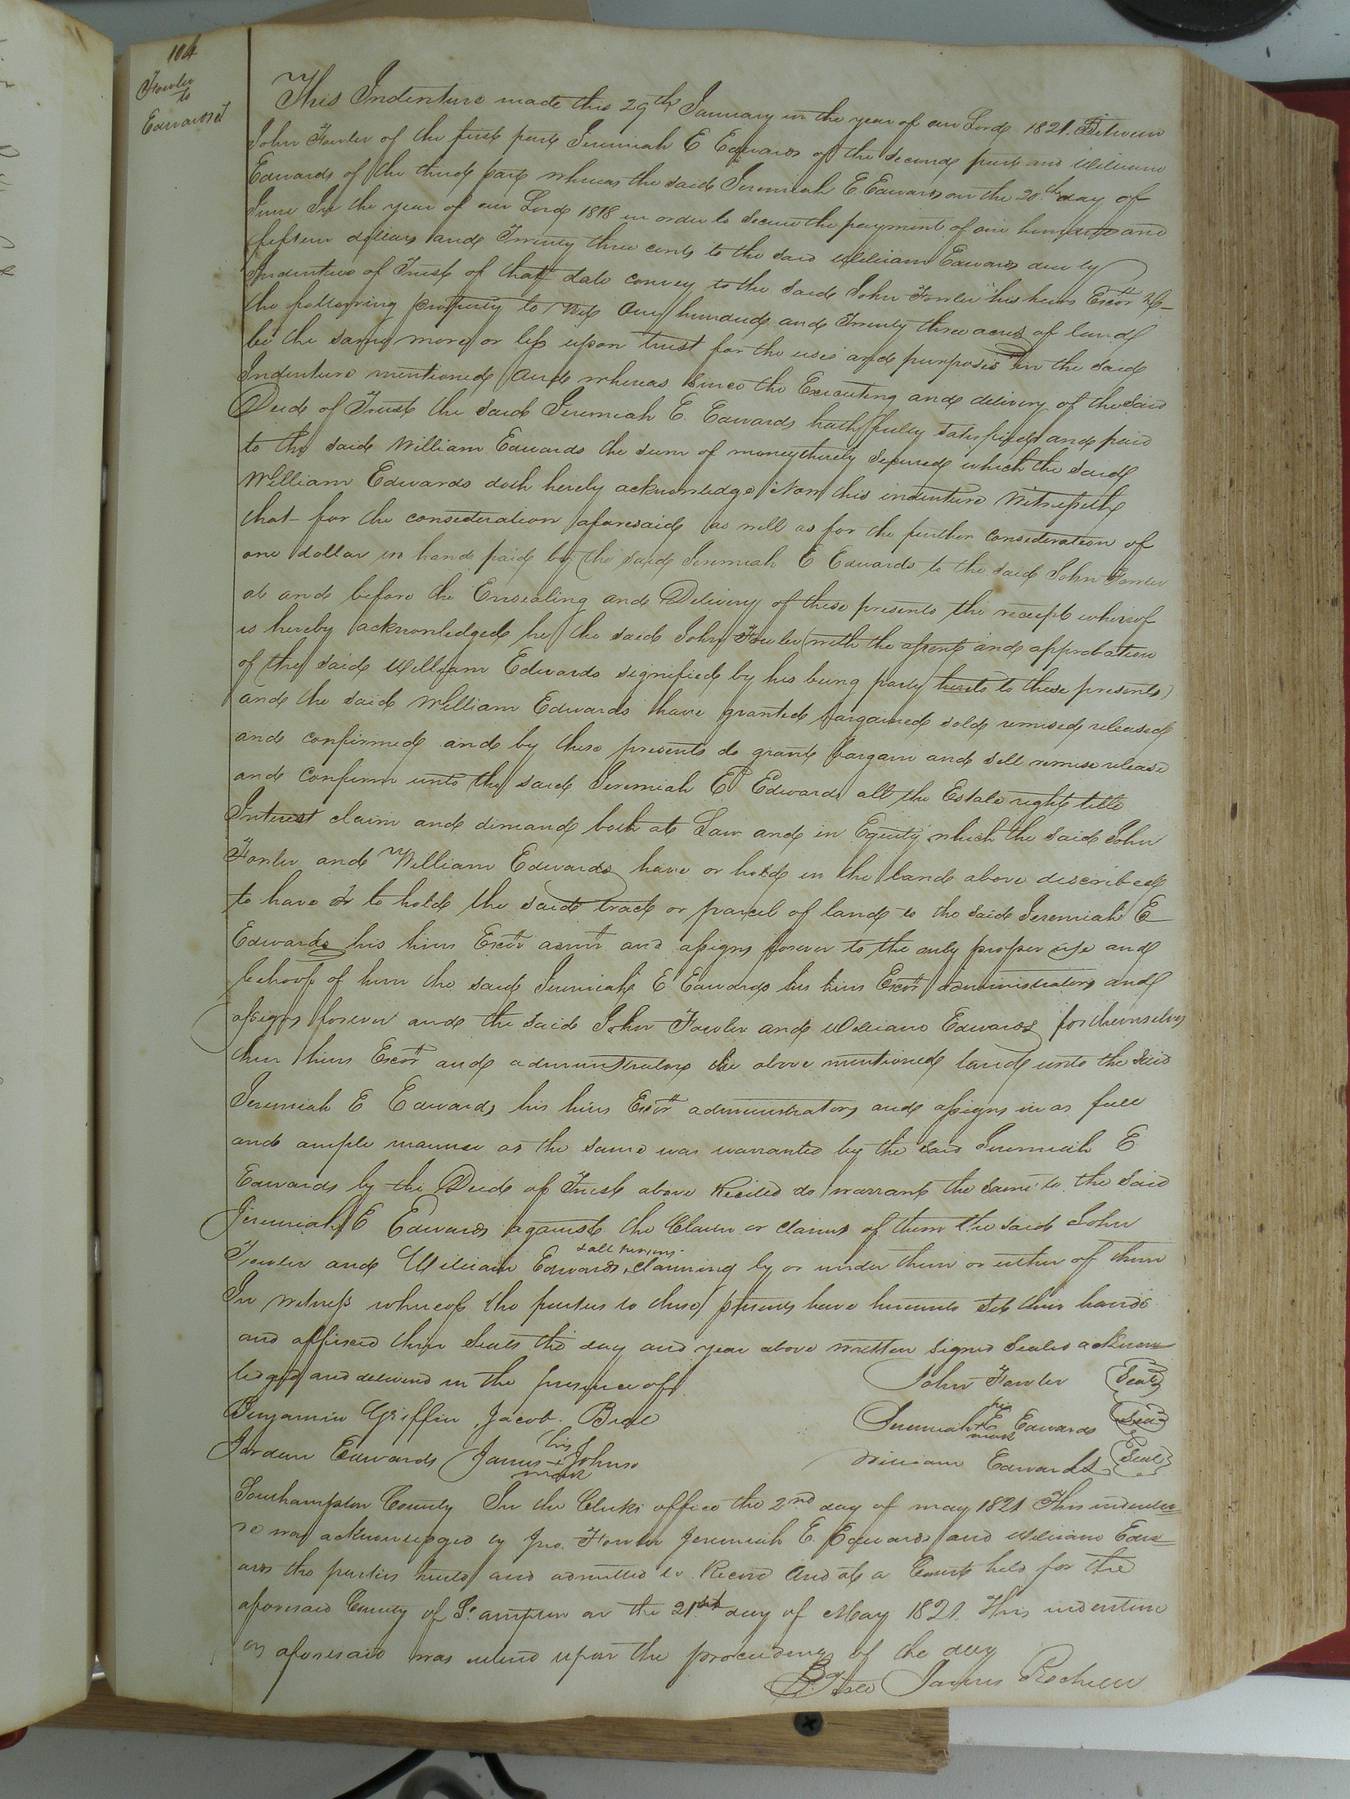 104
Fowler
to
Edwards
This Indenture made this 29th January in the year of our Lord 1821. Between
John Fowler of the first part Jeremiah E Edwards of the second part and William
Edwards of the third part whereas the said Jeremiah E. Edwards on the 20th day of
June In the year of our Lord 1818 in order to secure the payment of one hundred and
fifteen dollars and Twenty three cents to the said William Edwards did by
Indenture of Trust of that date convey to the said John Fowler his heirs Exors &c
the following property to Wit One hundred and Twenty three acres of land
be the same more or less upon trust for the uses and purposes in the said
Indenture mentioned And whereas since the Executing and delivery of the said
Deed of Trust the said Jeremiah E. Edwards hath fully satisfied and paid
to the said William Edwards the sum of money thereby secured which the said
William Edwards doth hereby acknowledge Now this indenture Witnesseth
that for the consideration aforesaid as well as for the further consideration of
one dollar in hand paid by the said Jeremiah E Edwards to the said John Fowler
at and before the Ensealing and Delivery of these presents the receipt whereof
is hereby acknowledged he the said John Fowler (with the assent and approbation
of the said William Edwards signified by his being party hereto to these presents)
and the said William Edwards have granted bargained sold remised released
and confirmed and by these presents do grant bargain and sell remise release
and confirm unto the said Jeremiah E Edwards all the Estate right title
Interest claim and demand both at Law and in Equity which the said John
Fowler and William Edwards have or hold in the land above described
to have & to hold the said tract or parcel of land to the said Jeremiah E
Edwards his heirs Exors admrs and assigns forever to the only proper use and
behoof of him the said Jeremiah E Edwards his heirs Exors administrators and
assigns forever and the said John Fowler and William Edwards for themselves
their heirs Exors and administrators the above mentioned land unto the said
Jeremiah E Edwards his heirs Exors administrators and assigns in as full
and ample manner as the same was warranted by the said Jeremiah E
Edwards by the Deed of Trust above Recited do warrant the same to the said
Jeremiah E Edwards against the Claim or claims of them the said John
Fowler and William Edwards & all persons claiming by or under them or either of them
In witness whereof the parties to these presents have hereunto set their hands
and affixed their seals the day and year above written signed sealed acknow
ledged and delivered in the presence of
John Fowler Seal
Benjamin Griffin, Jacob Beale
Jeremiah his E mark Edwards Seal
Jordan Edwards James his + mark Johnson
William Edwards Seal
Southampton County In the Clerks office the 2nd day of may 1821 This indentu
re was acknowledged by Jno. Fowler Jeremiah E. Edwards and William Edw
ards the parties hereto and admitted to Record And at a Court held for the
aforesaid County of So. ampton on the 21st day of May 1821. This indenture
as aforesaid was entered upon the proceedings of the day
Teste James Rochelle